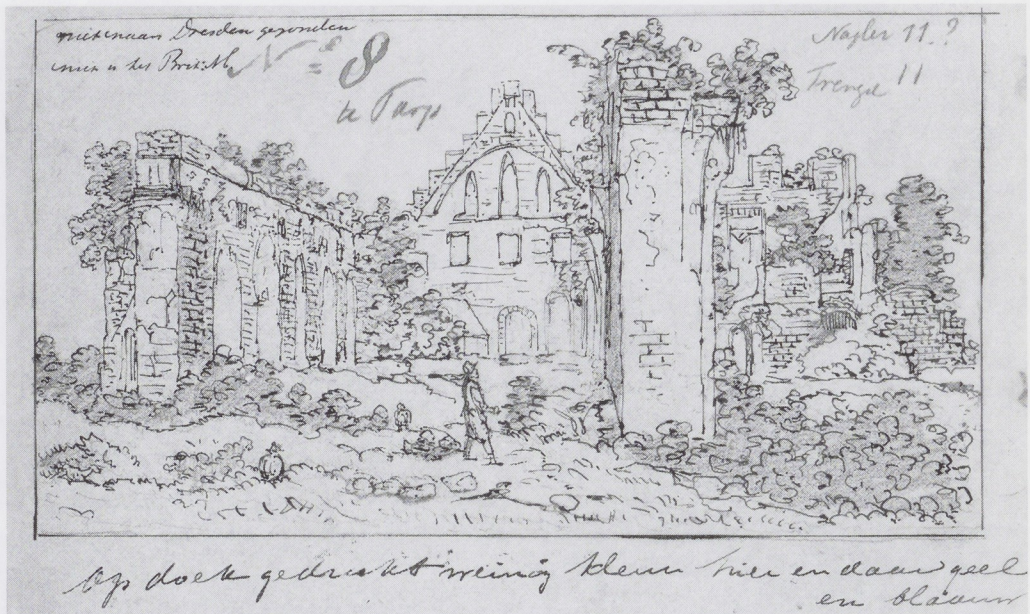 niet naar Dresden gezonden
is het
N° 8
te Parys
Nagler 11.?
Frenzel 11
op doek gedrukt weinig kleur hier en daar geel
en blaauw